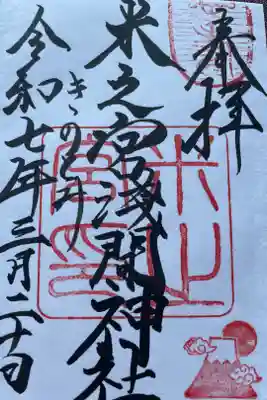 奉拝
米之宮淺間神社
令和七年三月二十日
米之
宮印